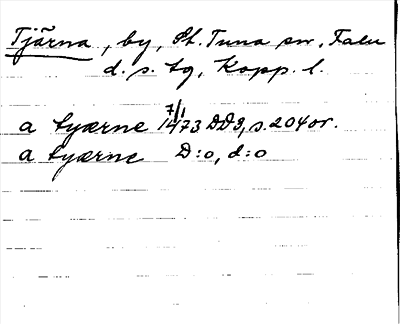 Tjärna, by, St. Tuna sn, Falu
d. s. tg, Kopp. l.
a tyærne 7/1 1473 DD3, s. 204 or.
a tyærne D:o, d:o